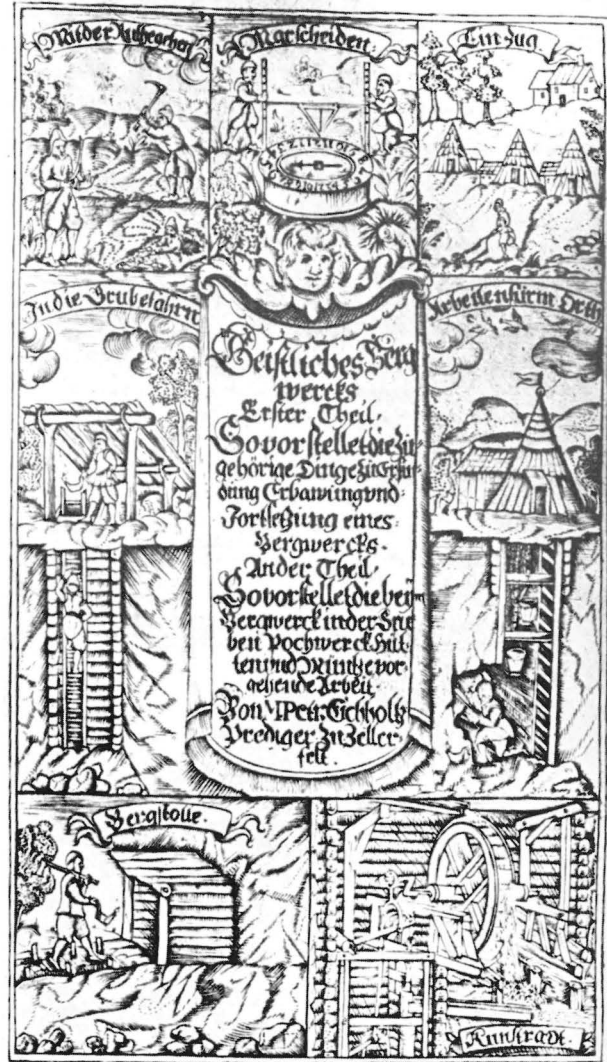 Mit der Ruthe gehen
Marscheiden.
Ein Zug
In die Grube fahrn
Arbeiten fürm Orth
Geistliches Berg
wercks
Erster Theil.
So vorstellet die Zu-
gehörige Dinge zu Erfin-
dung Erbawung vnd
Fortsetzung eines
Bergwercks.
Ander Theil
So vorstellet die beym
Bergwerck in der Gru
ben Pochwerck Hüt-
ten vnd Müntze vor-
gehende Arbeit.
Von M Petr: Eichholtz
Prediger zu Zeller
felt.
Bergstolle.
Kunstradt